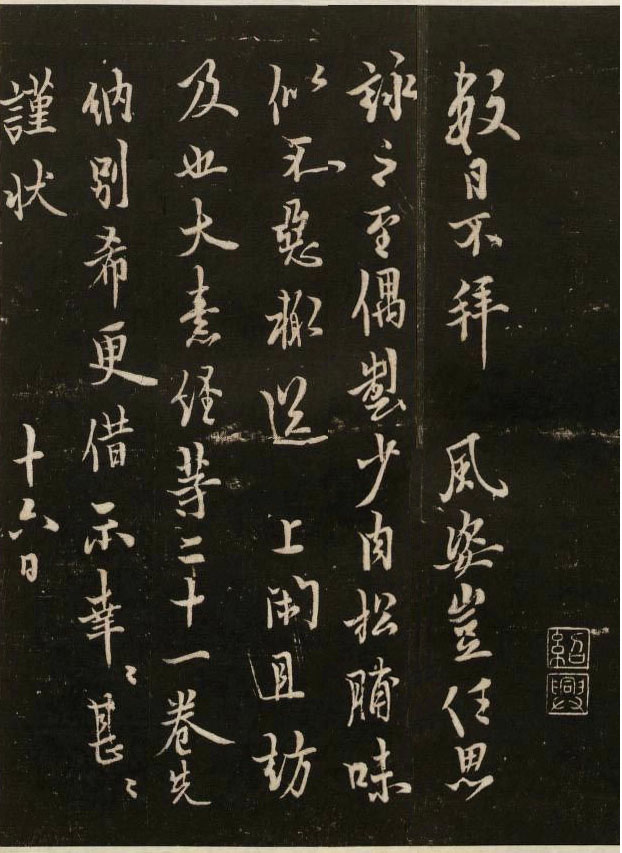 紹興
數日不拜 風姿豈任思
詠之至偶製少肉松脯味
似不惡輒送 上閑且訪
及也大素経等二十一卷先
納別希更借示幸〻甚〻
謹状 十六日